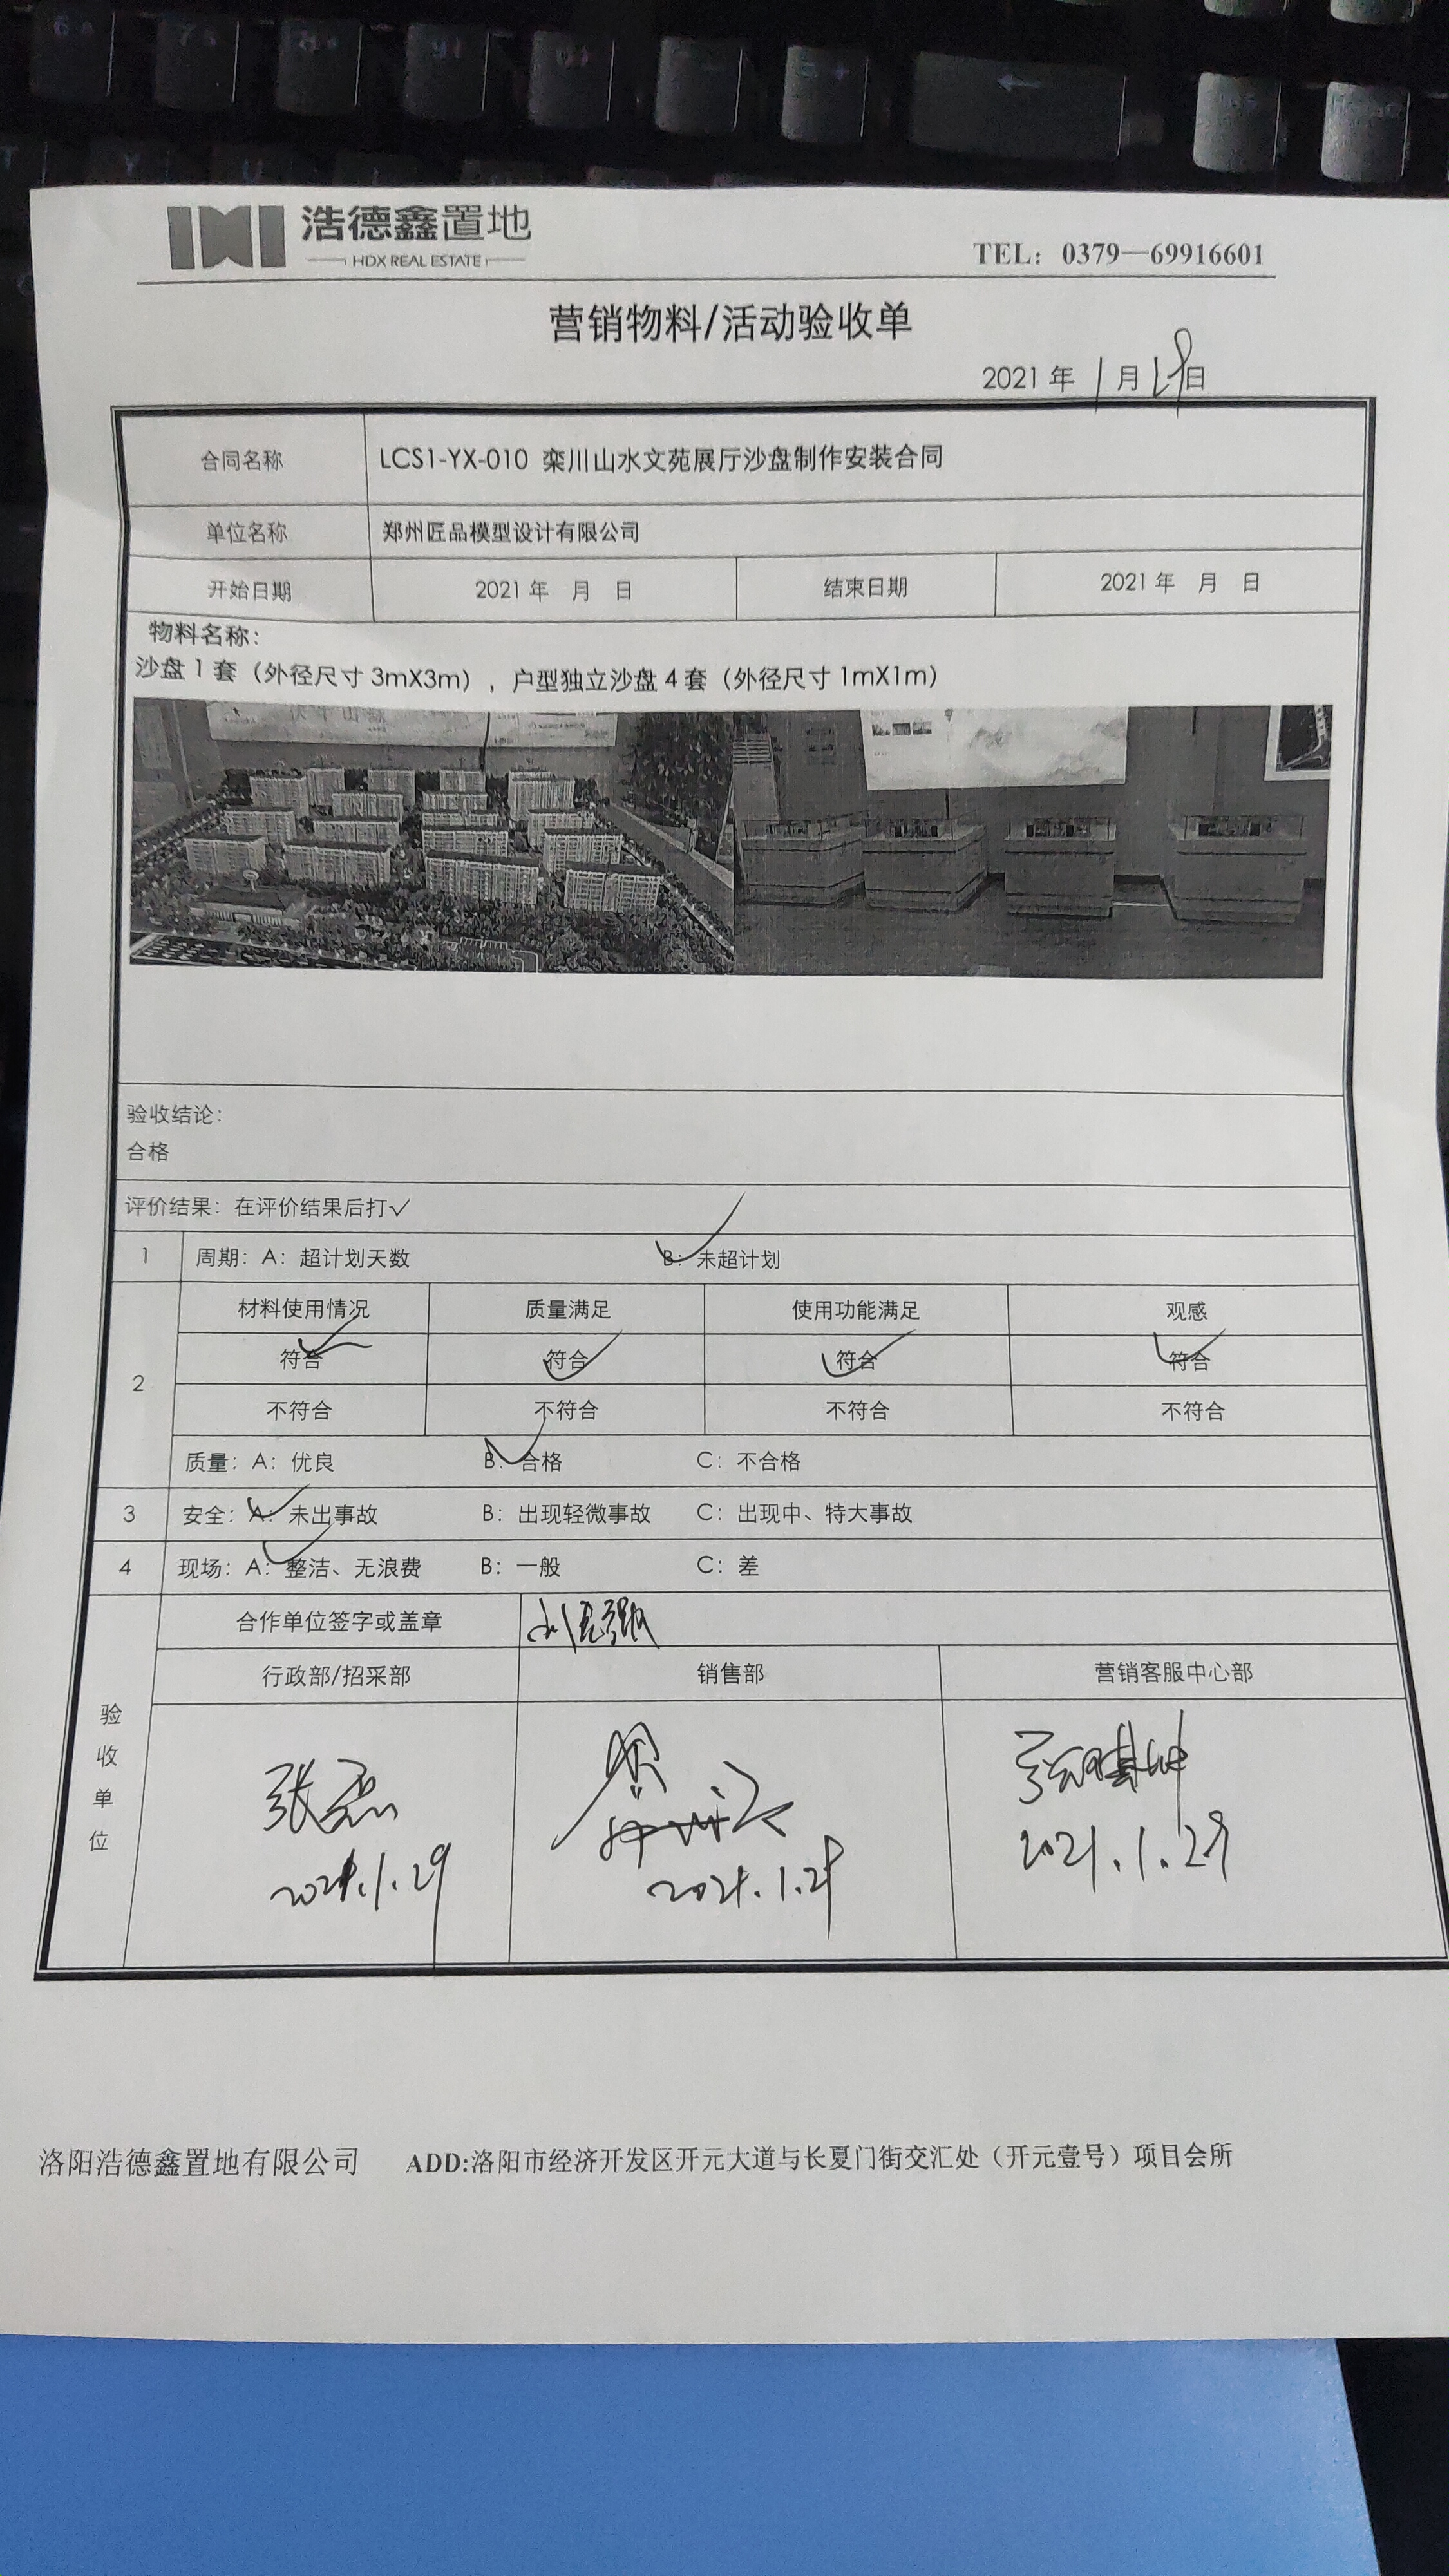 浩德鑫置地
HDX REAL ESTATE
TEL：0379—69916601
营销物料/活动验收单
2021 年 1 月 29 日
合同名称 LCS1-YX-010 栾川山水文苑展厅沙盘制作安装合同
单位名称 郑州匠品模型设计有限公司
开始日期 2021 年 月 日 结束日期 2021 年 月 日
物料名称：
沙盘 1 套（外径尺寸 3mX3m），户型独立沙盘 4 套（外径尺寸 1mX1m）
验收结论：
合格
评价结果：在评价结果后打✓
1 周期：A：超计划天数 B：未超计划 ✓
2 材料使用情况 质量满足 使用功能满足 观感
符合 ✓ 符合 ✓ 符合 ✓ 符合 ✓
不符合 不符合 不符合 不符合
质量：A：优良 B：合格 ✓ C：不合格
3 安全：A：未出事故 ✓ B：出现轻微事故 C：出现中、特大事故
4 现场：A：整洁、无浪费 ✓ B：一般 C：差
验收单位 合作单位签字或盖章
行政部/招采部 销售部 营销客服中心部
2021.1.29 2021.1.29 2021.1.29
洛阳浩德鑫置地有限公司 ADD:洛阳市经济开发区开元大道与长夏门街交汇处（开元壹号）项目会所